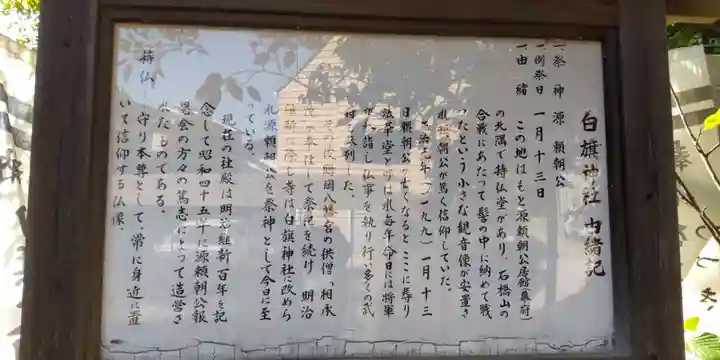 白旗神社 由緒記
一、祭神 源頼朝公
一、例祭日 一月十三日
一、由緒
この地はもと源頼朝公居館(幕府)
の北隅で持仏堂があり、石橋山の
合戦にあたって髻の中に納めて戦
ったという小さな観音像が安置さ
れ頼朝公が篤く信仰していた。
正治元年(一一九九)一月十三
日頼朝公が亡くなるとここに葬り
法華堂と呼ばれ毎年命日には将軍
が参詣し仏事を執り行い多くの武
将も参列した。
その後鶴岡八幡宮の供僧「相承
院」が奉仕して祭祀を続け 明治
維新に際し寺は白旗神社に改めら
れ源頼朝公を祭神として今日に至
っている。
現在の社殿は明治維新百年を記
念して昭和四十五年に源頼朝公報
恩会の方々の篤志によって造営さ
れたものである。
持仏
守り本尊として、常に身近に置
いて信仰する仏像。